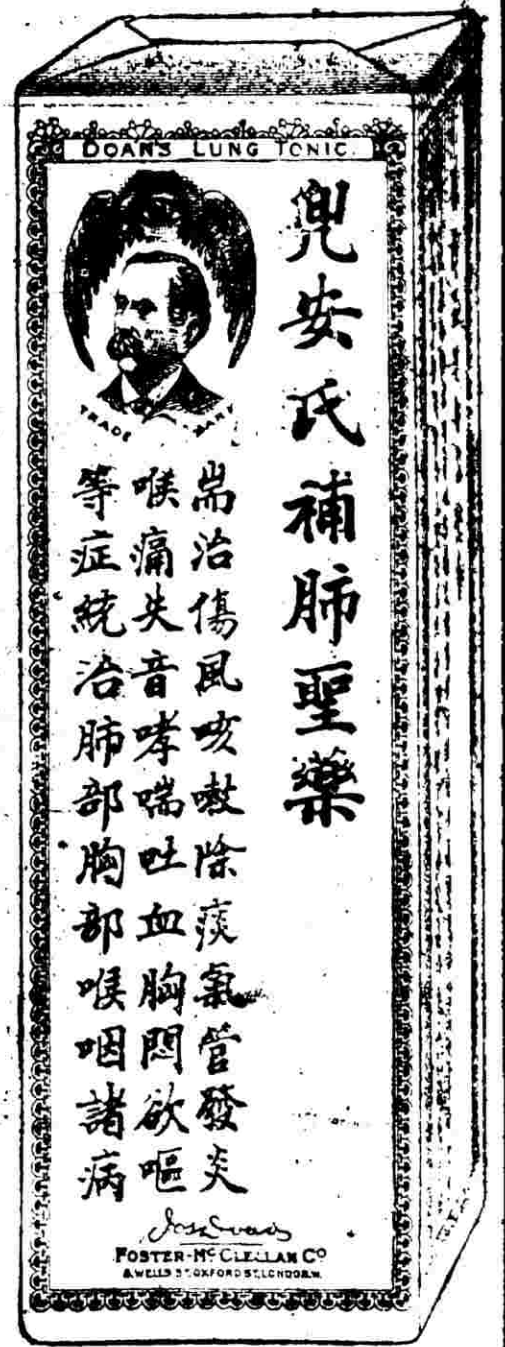 DOAN'S LUNG TONIC.
TRADE MARK
兜安氏補肺聖藥
耑治傷風咳嗽除痰氣管發炎
喉痛失音哮喘吐血胸悶欲嘔
等症統治肺部胸部喉咽諸病
FOSTER-McCLELLAN Co
8, WELLS ST OXFORD ST, LONDON, W.